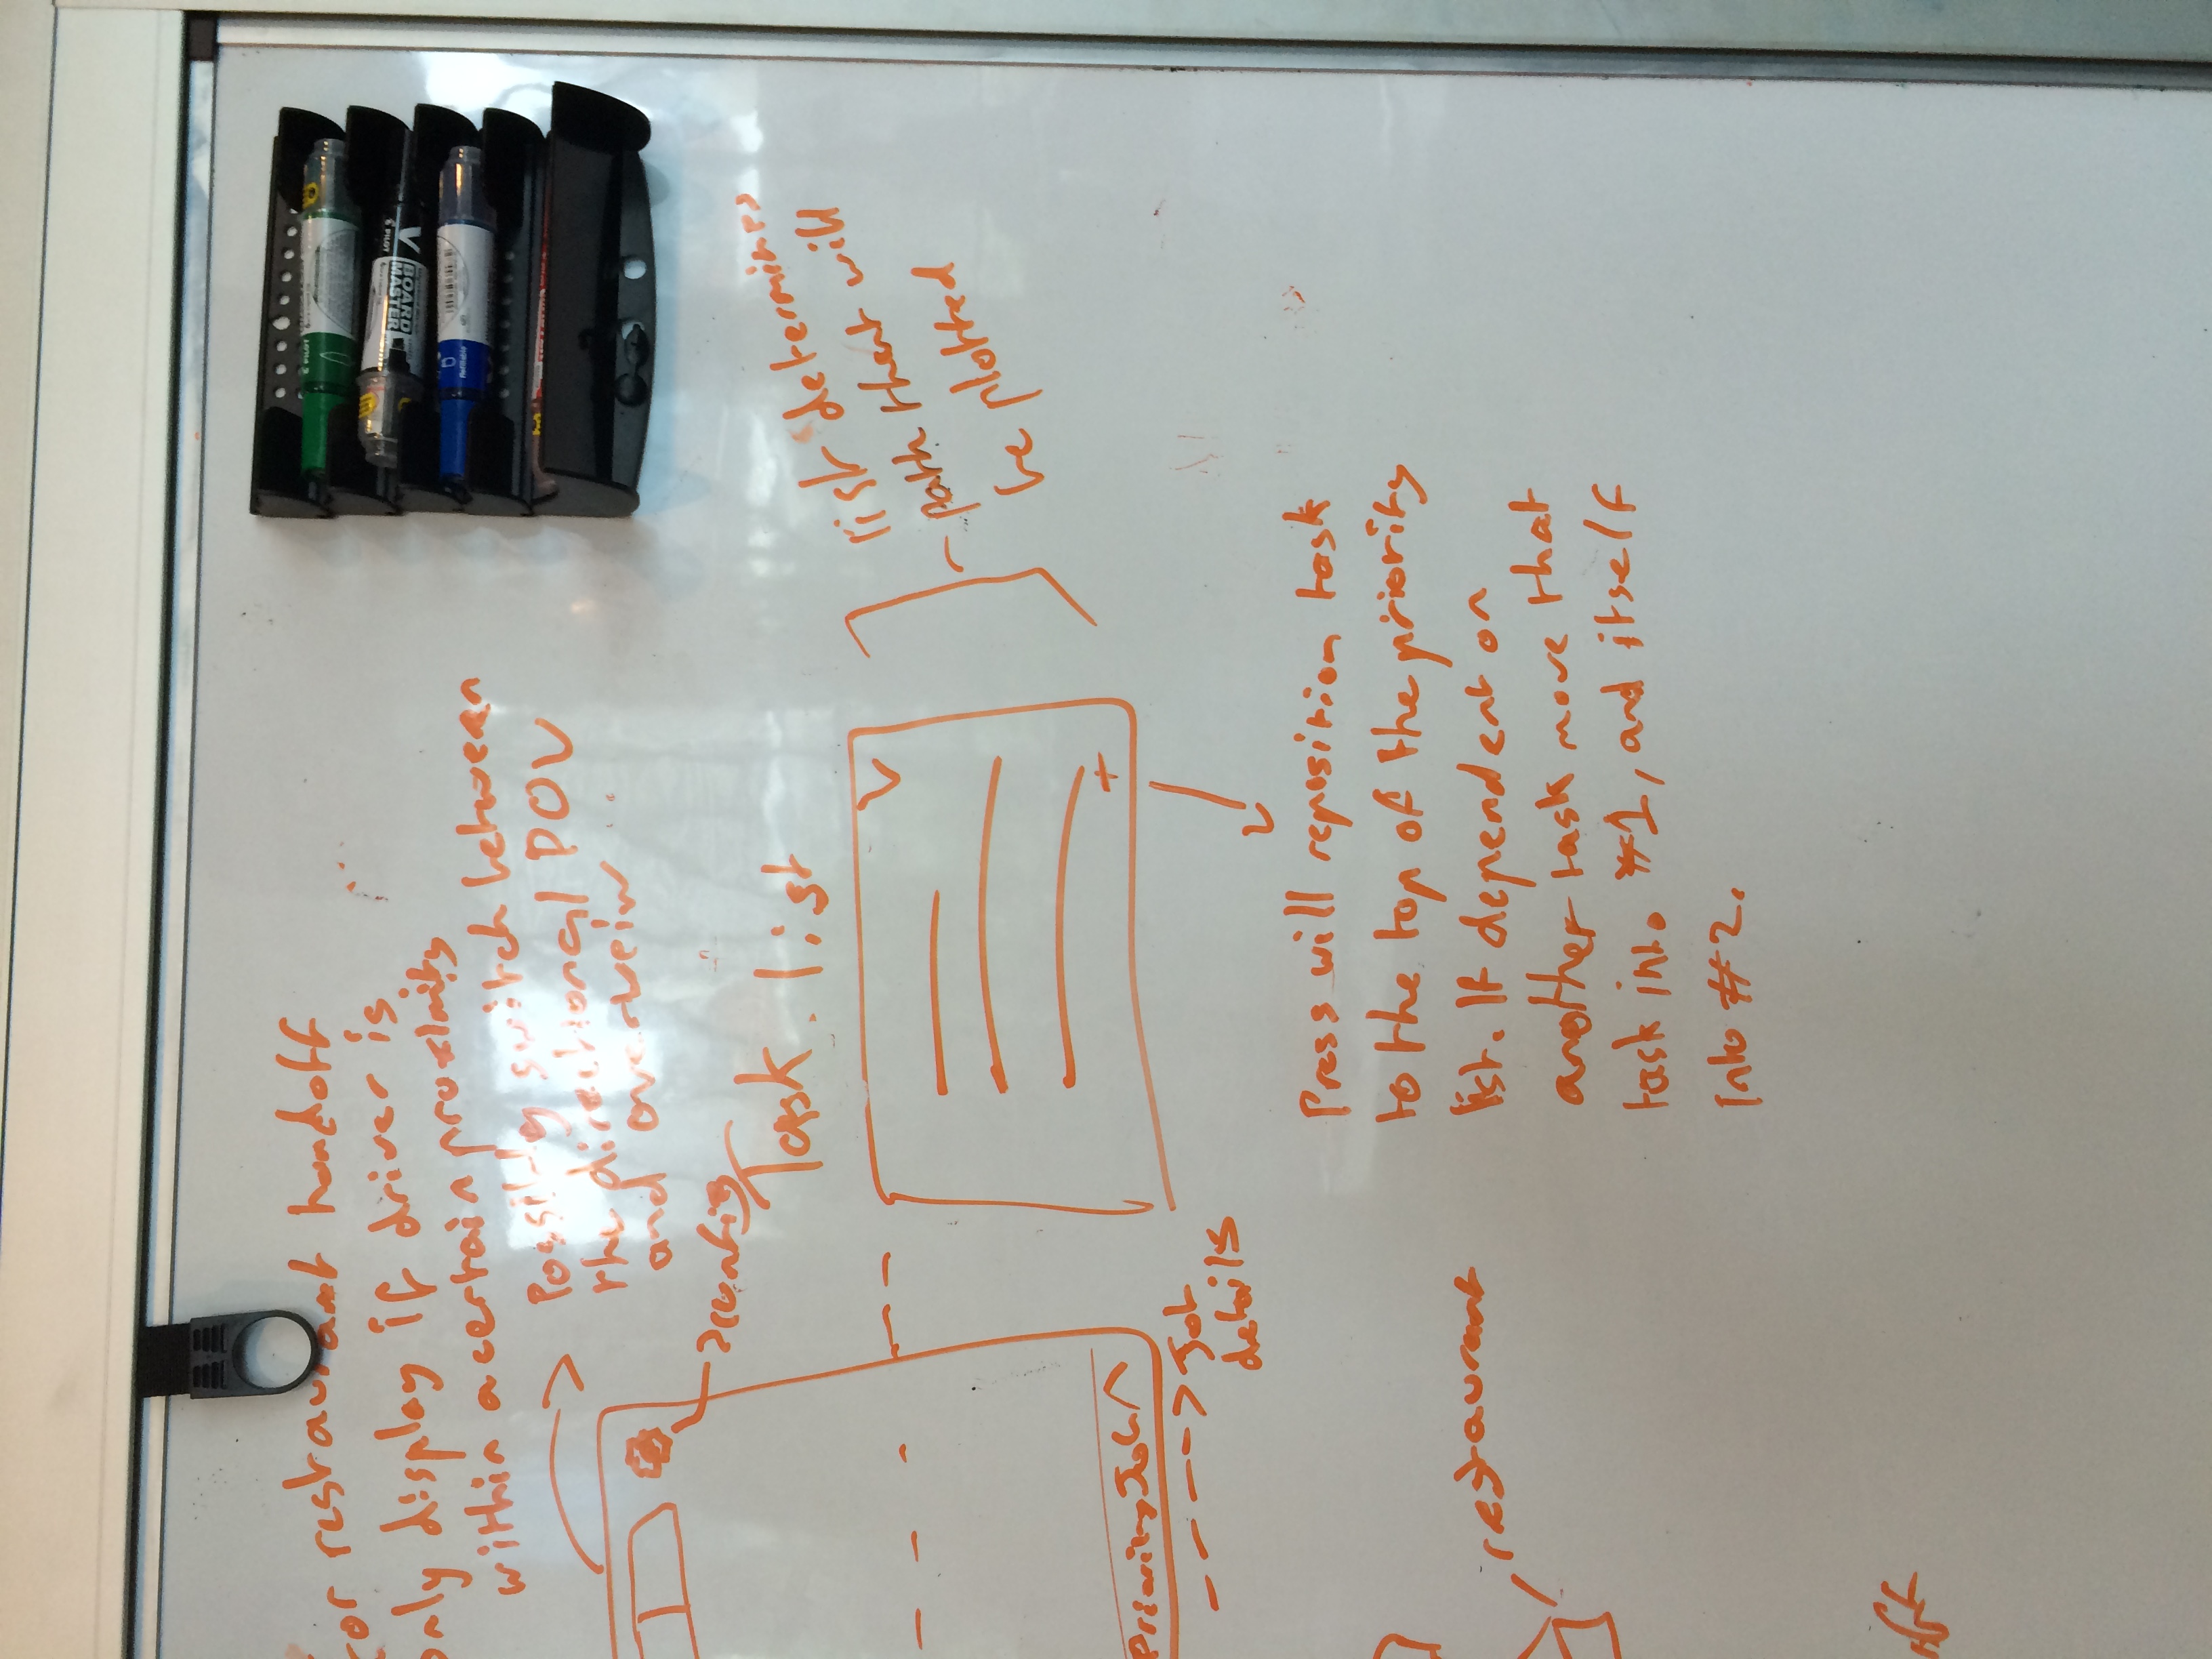 for restaurant handoff
only display if driver is
within a certain proximity
Possibly switch between
the directional POV
and overveiw
config
Task list
list determines
path that will
be plotted
Priority Job
Job
details
Press will reposition task
to the top of the priority
list. If dependent on
another task move that
task into #1, and itself
into #2.
restaurant
V
BOARD
MASTER
PILOT
Refillable